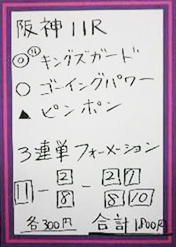 阪神11R
◎キングズガード
○ゴーイングパワー
▲ピンポン
3連単フォーメーション
2 2 7
11 - -
8 8 10
各300円 合計1,800円